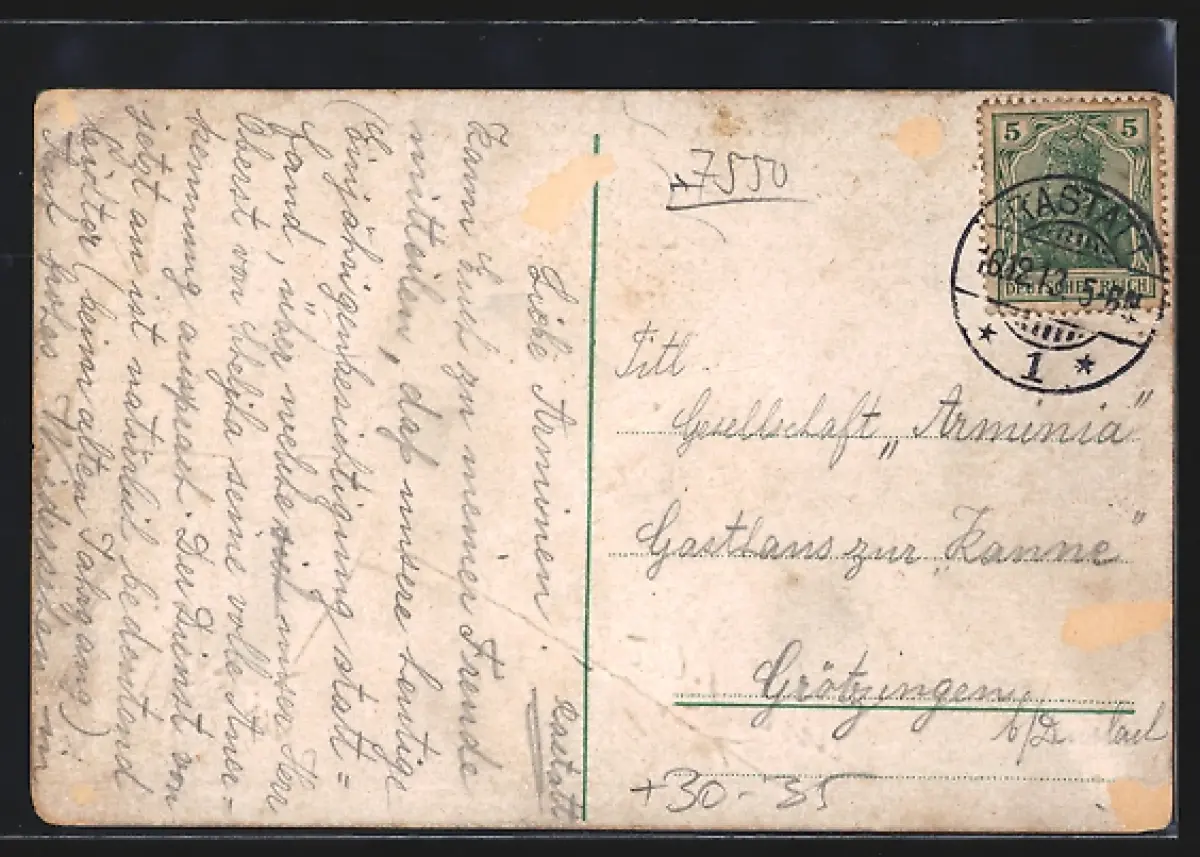 Rastatt
Liebe Arminen!
Kann Euch zu meiner Freude
mitteilen, daß unsere heutige
(Einjährigenbesichtigung statt=
fand, über welche unser Herr
Oberst von seine volle Aner=
kennung aussprach. Der Dienst von
jetzt an ist natürlich bedeutend
leichter (beim alten Jahrgang)
Auf frohes Wiedersehen in
17550
5 5
DEUTSCHES REICH
RASTATT
6.12.12. 5-6N
* 1 *
Titl.
Gesellschaft „Arminia"
Gasthaus zur „Kanne"
Grötzingen
b/Durlach
+30-35